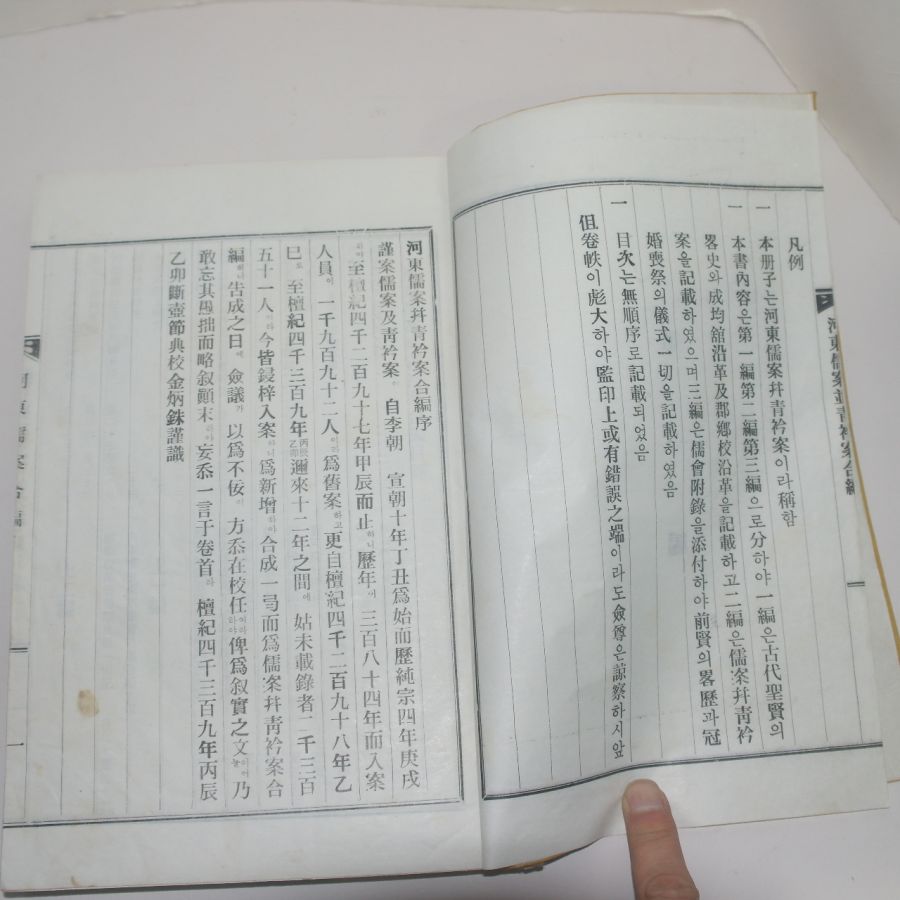 凡例
一 本册子는河東儒案幷靑衿案이라稱함
一 本書內容은第一編第二編第三編으로分하야一編은古代聖賢의
畧史와成均舘沿革及郡鄕校沿革을記載하고二編은儒案幷靑衿
案을記載하였으며三編은儒會附錄을添付하야前賢의畧歷과冠
婚喪祭의儀式一切을記載하였음
一 目次는無順序로記載되었음
但卷帙이彪大하야監印上或有錯誤之端이라도僉尊은諒察하시압
河東儒案並靑衿案合編
河東儒案幷靑衿案合編序
謹案儒案及靑衿案 自李朝 宣朝十年丁丑爲始而歷純宗四年庚戌
하야至檀紀四千二百九十七年甲辰而止하니歷年이 三百八十四年而入案
人員이 一千九百九十二人이라爲舊案하고更自檀紀四千二百九十八年乙
巳로 至檀紀四千三百九年丙辰乙卯邇來十二年之間에 姑未載錄者二千三百
五十一人이라今皆鋟梓入案하니爲新增하야合成一局而爲儒案幷靑衿案合
編하니告成之日에 僉議가 以爲不佞이 方忝在校任이라하야俾爲敘實之文이어늘乃
敢忘其愚拙而略敘顚末하야妄忝一言于卷首라 檀紀四千三百九年丙辰
乙卯斷壺節典校金炳銖謹識
河東儒案合編
一